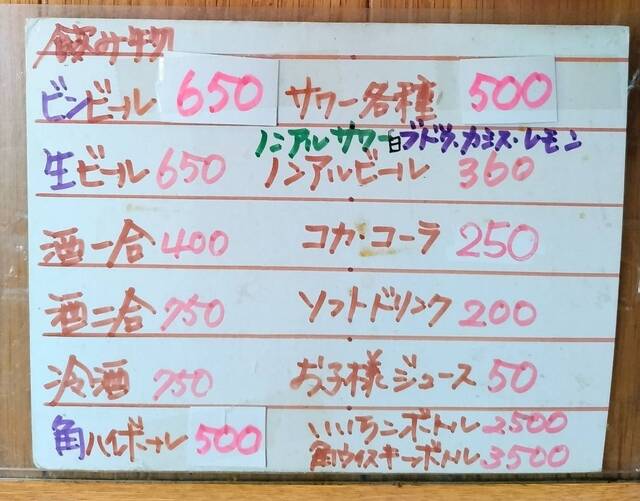 飲み物
ビンビール 650 サワー各種 500
ノンアルサワー白ブドウ、カシス・レモン
生ビール 650 ノンアルビール 360
酒一合 400 コカ・コーラ 250
酒二合 750 ソフトドリンク 200
冷酒 750 お子様ジュース 50
角ハイボール 500 いいちこボトル 2500
角ウイスキーボトル 3500